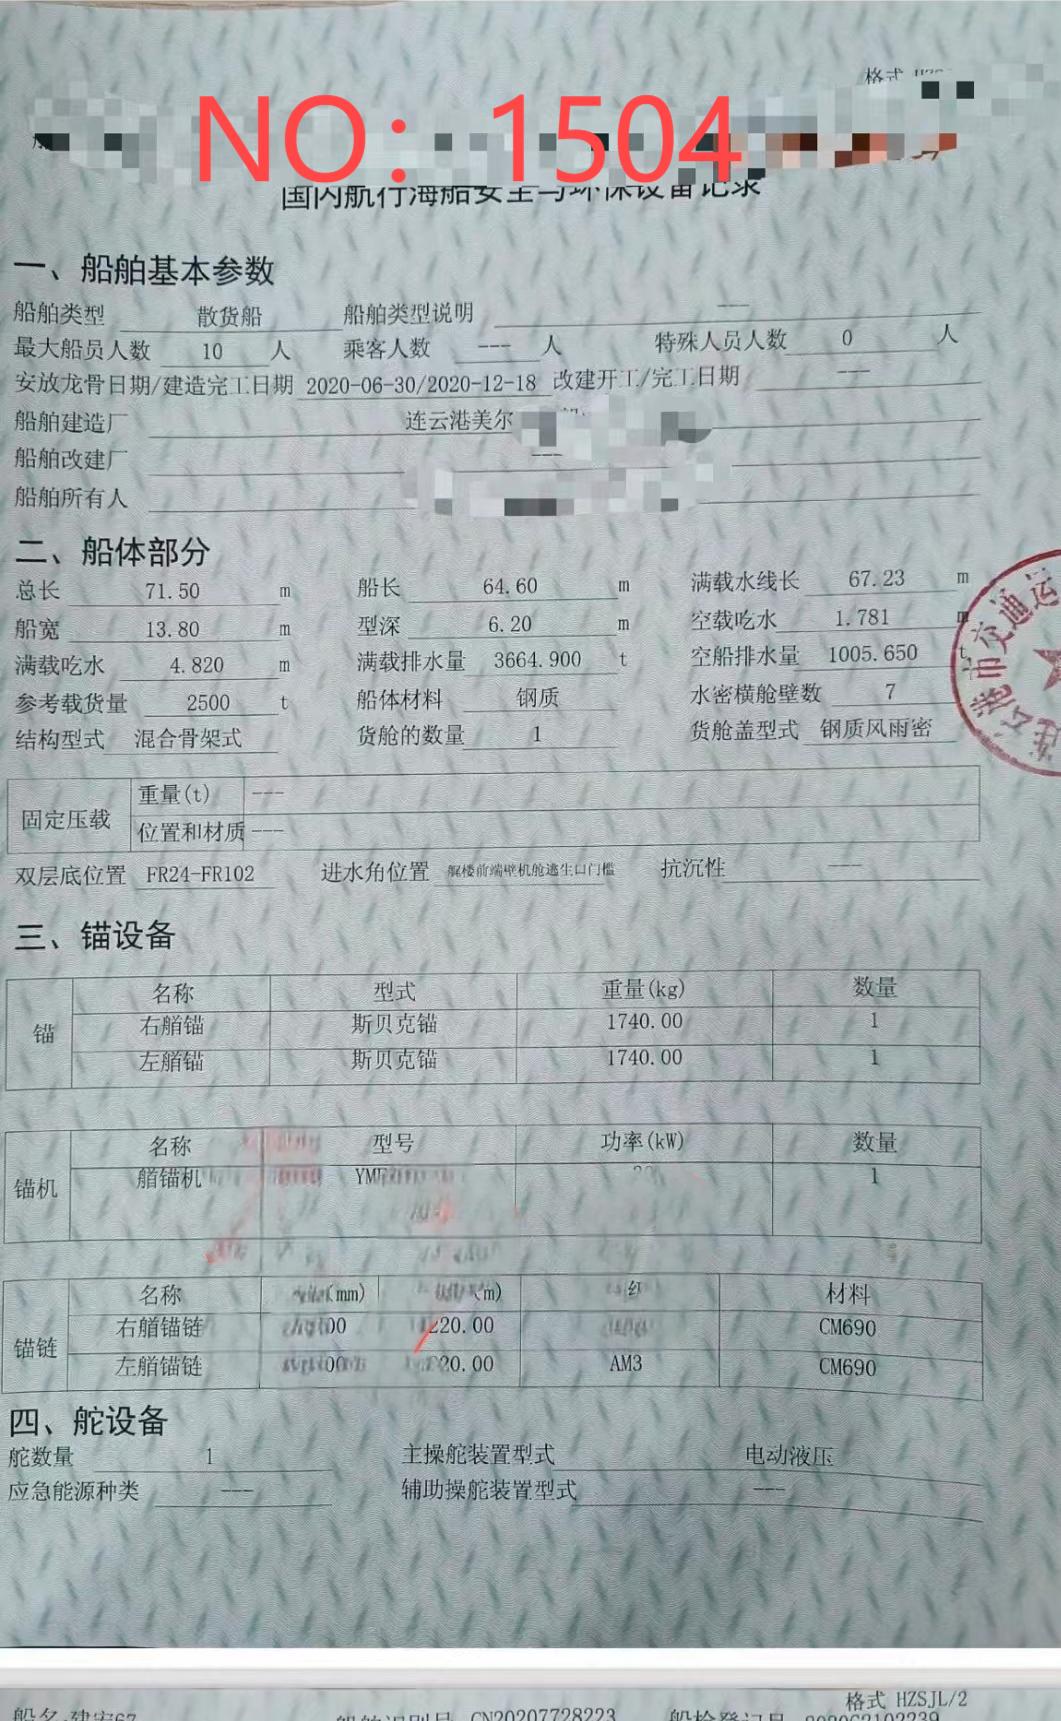 格式
NO：1504
国内航行海船安全与环保设备记录
一、船舶基本参数
船舶类型 散货船 船舶类型说明 ---
最大船员人数 10 人 乘客人数 --- 人 特殊人员人数 0 人
安放龙骨日期/建造完工日期 2020-06-30/2020-12-18 改建开工/完工日期 ---
船舶建造厂 连云港美尔
船舶改建厂 ---
船舶所有人
二、船体部分
总长 71.50 m 船长 64.60 m 满载水线长 67.23 m
船宽 13.80 m 型深 6.20 m 空载吃水 1.781 m
满载吃水 4.820 m 满载排水量 3664.900 t 空船排水量 1005.650 t
参考载货量 2500 t 船体材料 钢质 水密横舱壁数 7
结构型式 混合骨架式 货舱的数量 1 货舱盖型式 钢质风雨密
连云港市交通运
固定压载 重量(t) ---
位置和材质 ---
双层底位置 FR24-FR102 进水角位置 艉楼前端壁机舱逃生口门槛 抗沉性 ---
三、锚设备
锚 名称 型式 重量(kg) 数量
右艏锚 斯贝克锚 1740.00 1
左艏锚 斯贝克锚 1740.00 1
锚机 名称 型号 功率(kW) 数量
艏锚机 1
锚链 名称 (mm) (m) 材料
右艏锚链 220.00 CM690
左艏锚链 AM3 CM690
四、舵设备
舵数量 1 主操舵装置型式 电动液压
应急能源种类 --- 辅助操舵装置型式 ---
格式 HZSJL/2
船名 建宏67 船舶识别号 CN20207728223 船检登记号